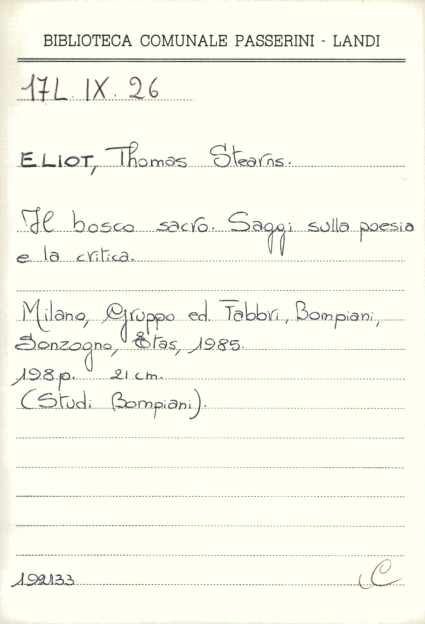 BIBLIOTECA COMUNALE PASSERINI - LANDI
17L. IX. 26
ELIOT, Thomas Stearns.
Il bosco sacro. Saggi sulla poesia
e la critica.
Milano, Gruppo ed. Fabbri, Bompiani,
Sonzogno, Etas, 1985.
198 p. 21 cm.
(Studi Bompiani).
192133
C